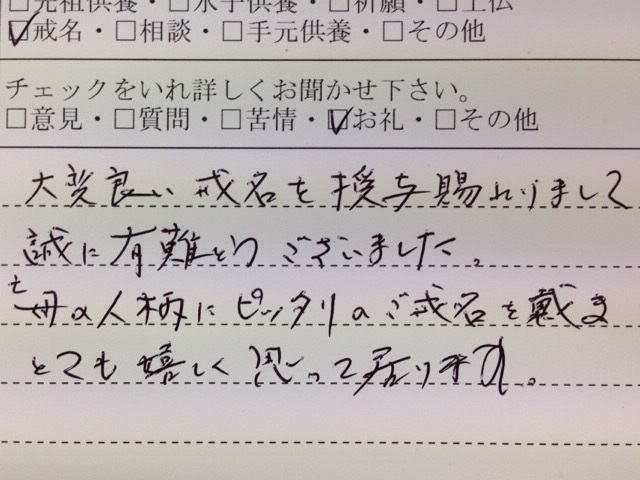 □先祖供養・□水子供養・□祈願・□土仏
☑戒名・□相談・□手元供養・□その他
チェックをいれ詳しくお聞かせ下さい。
□意見・□質問・□苦情・☑お礼・□その他
大変良い戒名を授与賜わりまして
誠に有難とうございました。
亡母の人柄にピッタリのご戒名を戴き
とても嬉しく思って居ります。